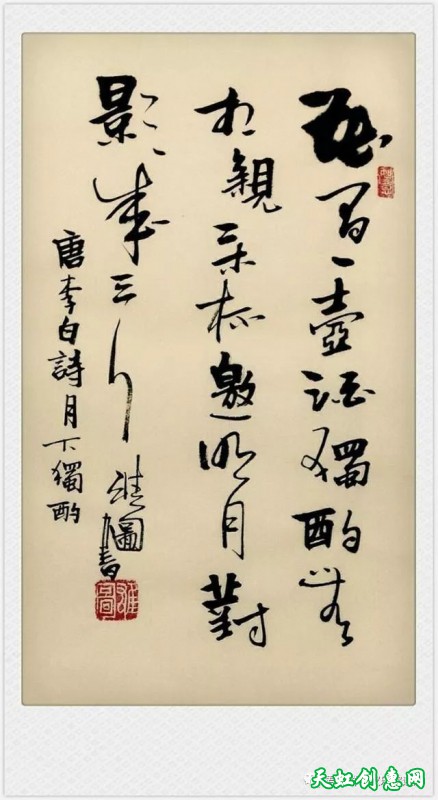 花間一壺酒獨酌無
相親舉杯邀明月對
影成三人
圖書
唐李白詩月下獨酌
天虹创惠网